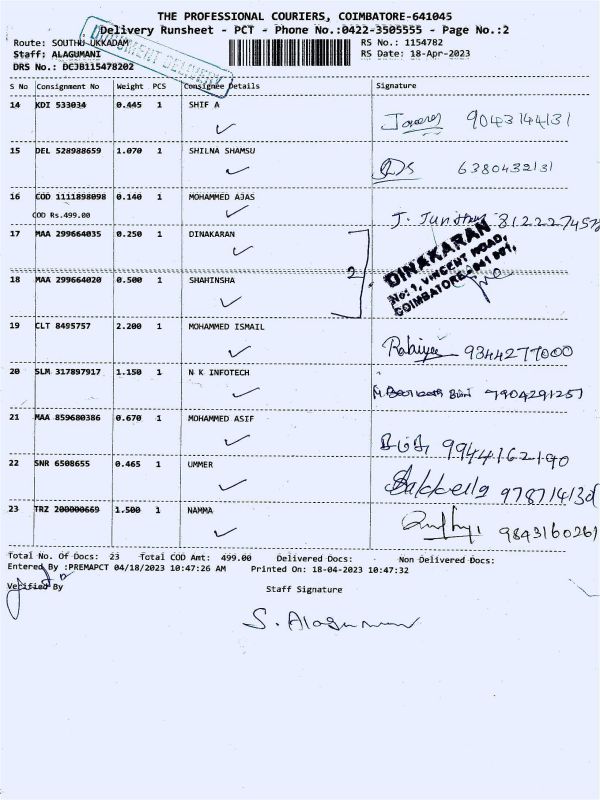 THE PROFESSIONAL COURIERS, COIMBATORE-641045
Delivery Runsheet - PCT - Phone No.:0422-3505555 - Page No.:2
Route: SOUTHU UKKADAM
RS No.: 1154782
DOCUMENT DELIVERY
Staff: ALAGUMANI
RS Date: 18-Apr-2023
DRS No.: DCJB115478202
S No Consignment No Weight PCS Consignee Details Signature
14 KDI 533034 0.445 1 SHIF A 9043144131
15 DEL 528988659 1.070 1 SHILNA SHAMSU 6380432131
16 COD 1111898098 0.140 1 MOHAMMED AJAS
COD Rs.499.00
17 MAA 299664035 0.250 1 DINAKARAN
2
DINAKARAN
No: 1, VINCENT ROAD,
COIMBATORE-641 001.
18 MAA 299664020 0.500 1 SHAHINSHA
19 CLT 8495757 2.200 1 MOHAMMED ISMAIL
Rabiya 9344277000
20 SLM 317897917 1.150 1 N K INFOTECH
7904291257
21 MAA 859680386 0.670 1 MOHAMMED ASIF
9944162190
22 SNR 6508655 0.465 1 UMMER
23 TRZ 200000669 1.500 1 NAMMA
9843160261
Total No. Of Docs: 23 Total COD Amt: 499.00 Delivered Docs: Non Delivered Docs:
Entered By :PREMAPCT 04/18/2023 10:47:26 AM Printed On: 18-04-2023 10:47:32
Verified By
Staff Signature